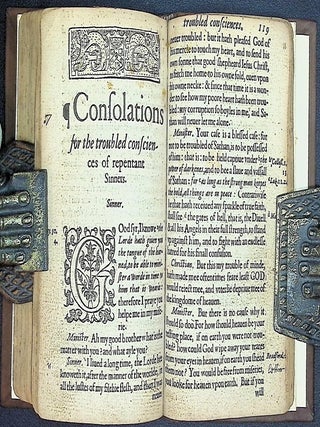 ¶ Consolations
for the troubled conscien-
ces of repentant
Sinners.
Sinner.
Good sir, I know the
Lords hath giuen you
the tongue of the learned
ter a word in time to
him that is
therefore I pray you
helpe me in my mise-
rie.
Minister. Ah my good brother what is the
matter with you? and what ayle you?
Sinner. I liued a long time, the Lord
knoweth it, after the manner of the worlde, in
all the lustes of my filthie flesh, and then I was
neuer
troubled consciences. 119
neuer troubled: but it hath pleased God of
his mercie to touch my heart, and to send his
own sonne that good shepheard Iesus Christ,
to fetch me home to his owne fold, euen vpon
his own necke: & since that time it is a won-
der to see how my poore heart hath been trou-
bled: my corruption so boyles in me, and Sa-
than will neuer let me alone.
Minister. Your case is a blessed case: for
not to be troubled of Sathan, is to be possessed
of him: that is: to be held captiue vnder the
power of darknes, and to bee a slaue and vassall
of Sathan: for as long as the strong man keepes
the hold, all things are in peace: Contrariwise
that hath receiued any sparkle of true faith,
shall see the gates of hell, that is, the Diuell
all his Angels in their full strength, to stand
vp against him, and to fight with an endlesse
hatred for his small confusion.
Christian. But this my trouble of minde,
hath made mee oftentimes feare least GOD
would reiect mee, and vtterly depriue mee of
the kingdome of heauen.
Minister. But there is no cause why it
should so do. For how should heauen be your
resting place, if on earth you were not trou-
bled? how could God wipe away your teares
from your eyes in heauen, if on earth you sheed
them not? You would be free from miseries,
you looke for heauen vpon earth. But if you
will